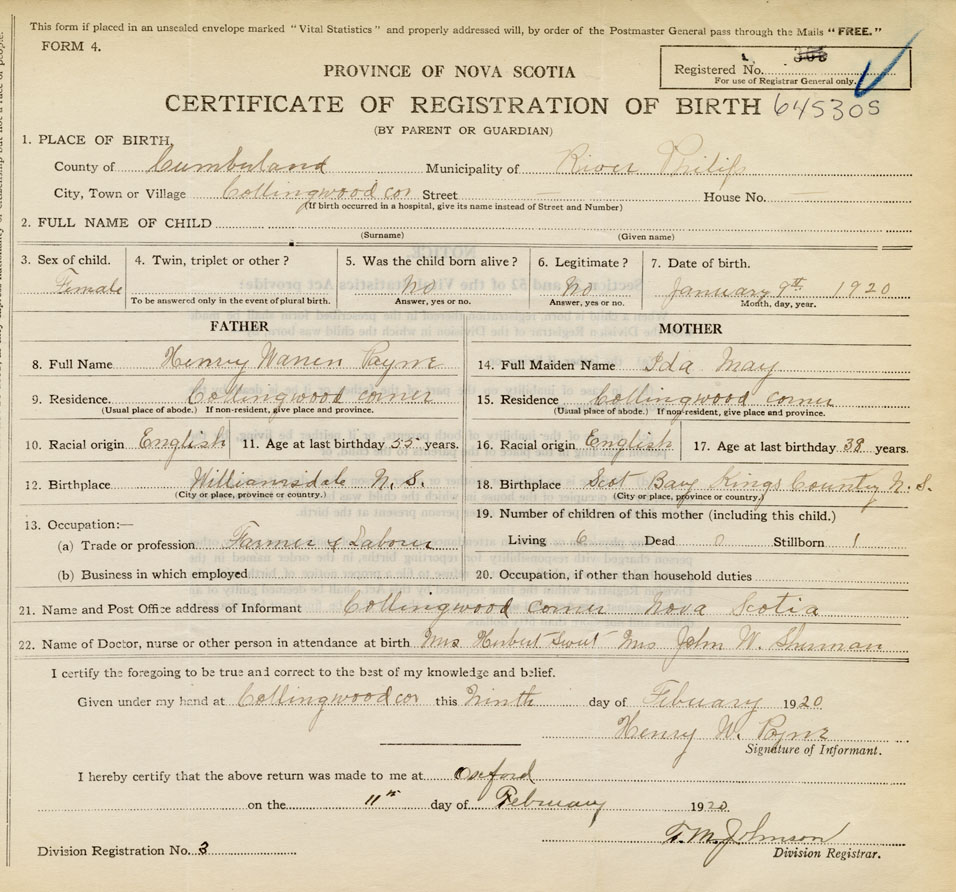 This form if placed in an unsealed envelope marked "Vital Statistics" and properly addressed will, by order of the Postmaster General pass through the Mails "FREE."
FORM 4.
Registered No.
For use of Registrar General only.
PROVINCE OF NOVA SCOTIA
CERTIFICATE OF REGISTRATION OF BIRTH 645305
(BY PARENT OR GUARDIAN)
1. PLACE OF BIRTH,
County of Cumberland Municipality of River Philip
City, Town or Village Collingwood cor Street House No.
(If birth occurred in a hospital, give its name instead of Street and Number)
2. FULL NAME OF CHILD
(Surname) (Given name)
3. Sex of child. 4. Twin, triplet or other? 5. Was the child born alive? 6. Legitimate? 7. Date of birth.
Female No No January 9th 1920
To be answered only in the event of plural birth. Answer, yes or no. Answer, yes or no. Month, day, year.
FATHER MOTHER
8. Full Name Henry Warren Payne 14. Full Maiden Name Ida May
9. Residence. Collingwood corner 15. Residence Collingwood corner
(Usual place of abode.) If non-resident, give place and province. (Usual place of abode.) If non-resident, give place and province.
10. Racial origin English 11. Age at last birthday 55 years. 16. Racial origin English 17. Age at last birthday 38 years.
12. Birthplace Williamsdale N. S. 18. Birthplace Scot Bay Kings County N. S.
(City or place, province or country.) (City or place, province or country.)
13. Occupation:— 19. Number of children of this mother (including this child.)
(a) Trade or profession Farmer & Laborer Living 6 Dead 0 Stillborn 1
(b) Business in which employed 20. Occupation, if other than household duties
21. Name and Post Office address of Informant Collingwood corner Nova Scotia
22. Name of Doctor, nurse or other person in attendance at birth Mrs Herbert Sweet Mrs John W. Shurman
I certify the foregoing to be true and correct to the best of my knowledge and belief.
Given under my hand at Collingwood cor this Ninth day of February 1920
Henry W. Payne
Signature of Informant.
I hereby certify that the above return was made to me at Oxford
on the 11th day of February 1920
T. M. Johnson
Division Registration No. 3 Division Registrar.